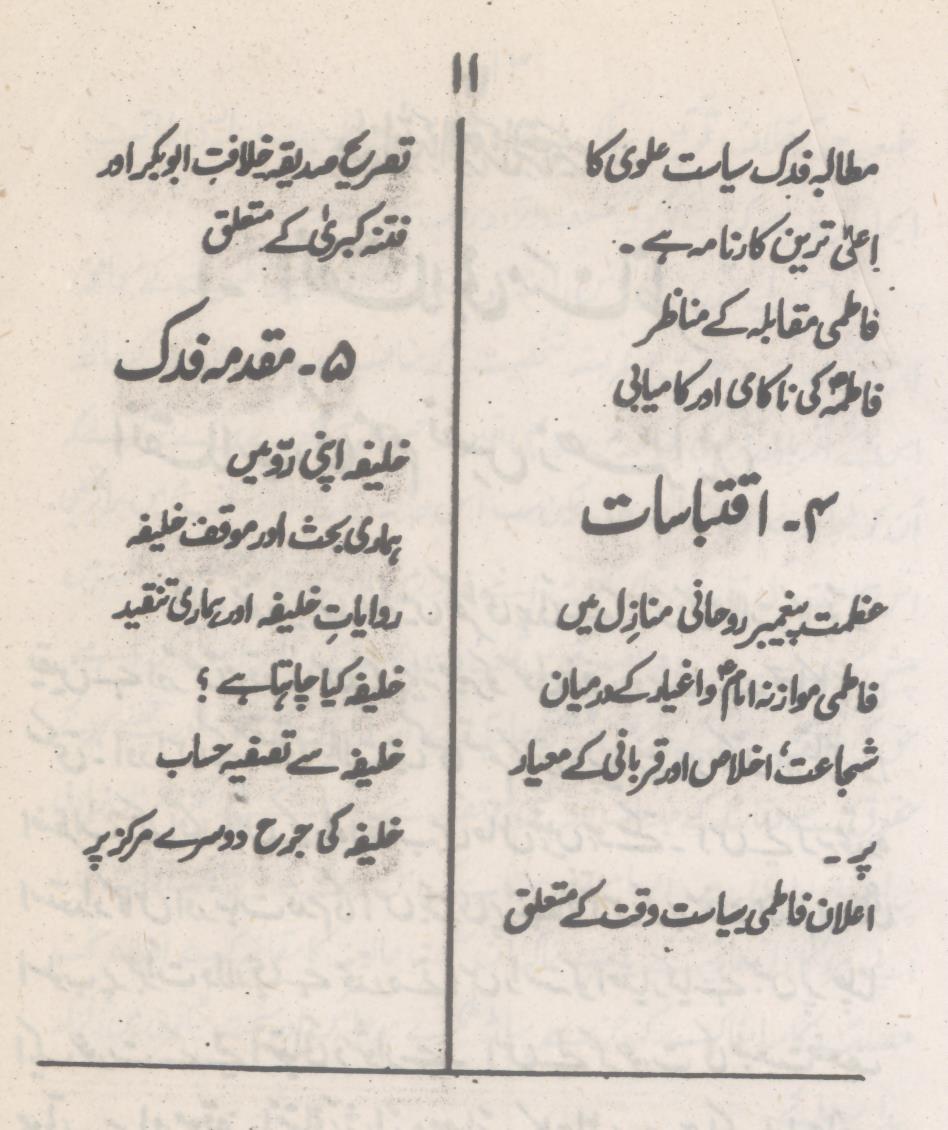 ۱۱
مطالبہ فدک سیاست علوی کا
اعلیٰ ترین کارنامہ ہے ۔
فاطمی مقابلہ کے مناظر
فاطمہؑ کی ناکامی اور کامیابی
۴۔ اقتباسات
عظمت پیغمبر روحانی منازل میں
فاطمی موازنہ امامؑ و اغیار کے درمیان
شجاعت، اخلاص اور قربانی کے معیار
پر ۔
اعلان فاطمی سیاست وقت کے متعلق
تصریح صدیقہ خلافتِ ابوبکر اور
فتنہ کبریٰ کے متعلق
۵۔ مقدمہ فدک
خلیفہ اپنی ردّو میں
ہماری بحث اور موقف خلیفہ
روایاتِ خلیفہ اور ہماری تنقید
خلیفہ کیا چاہتا ہے ؟
خلیفہ سے تصفیہ حساب
خلیفہ کی جرح دوسرے مرکز پر